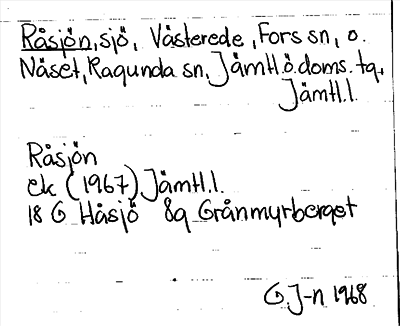 Råsjön, sjö, Västerede, Fors sn, o.
Näset, Ragunda sn, Jämtl.ö.doms. tg,
Jämtl.l.
Råsjön
ek (1967) Jämtl.l.
18 G Håsjö 8g Grånmyrberget
G.J-n 1968